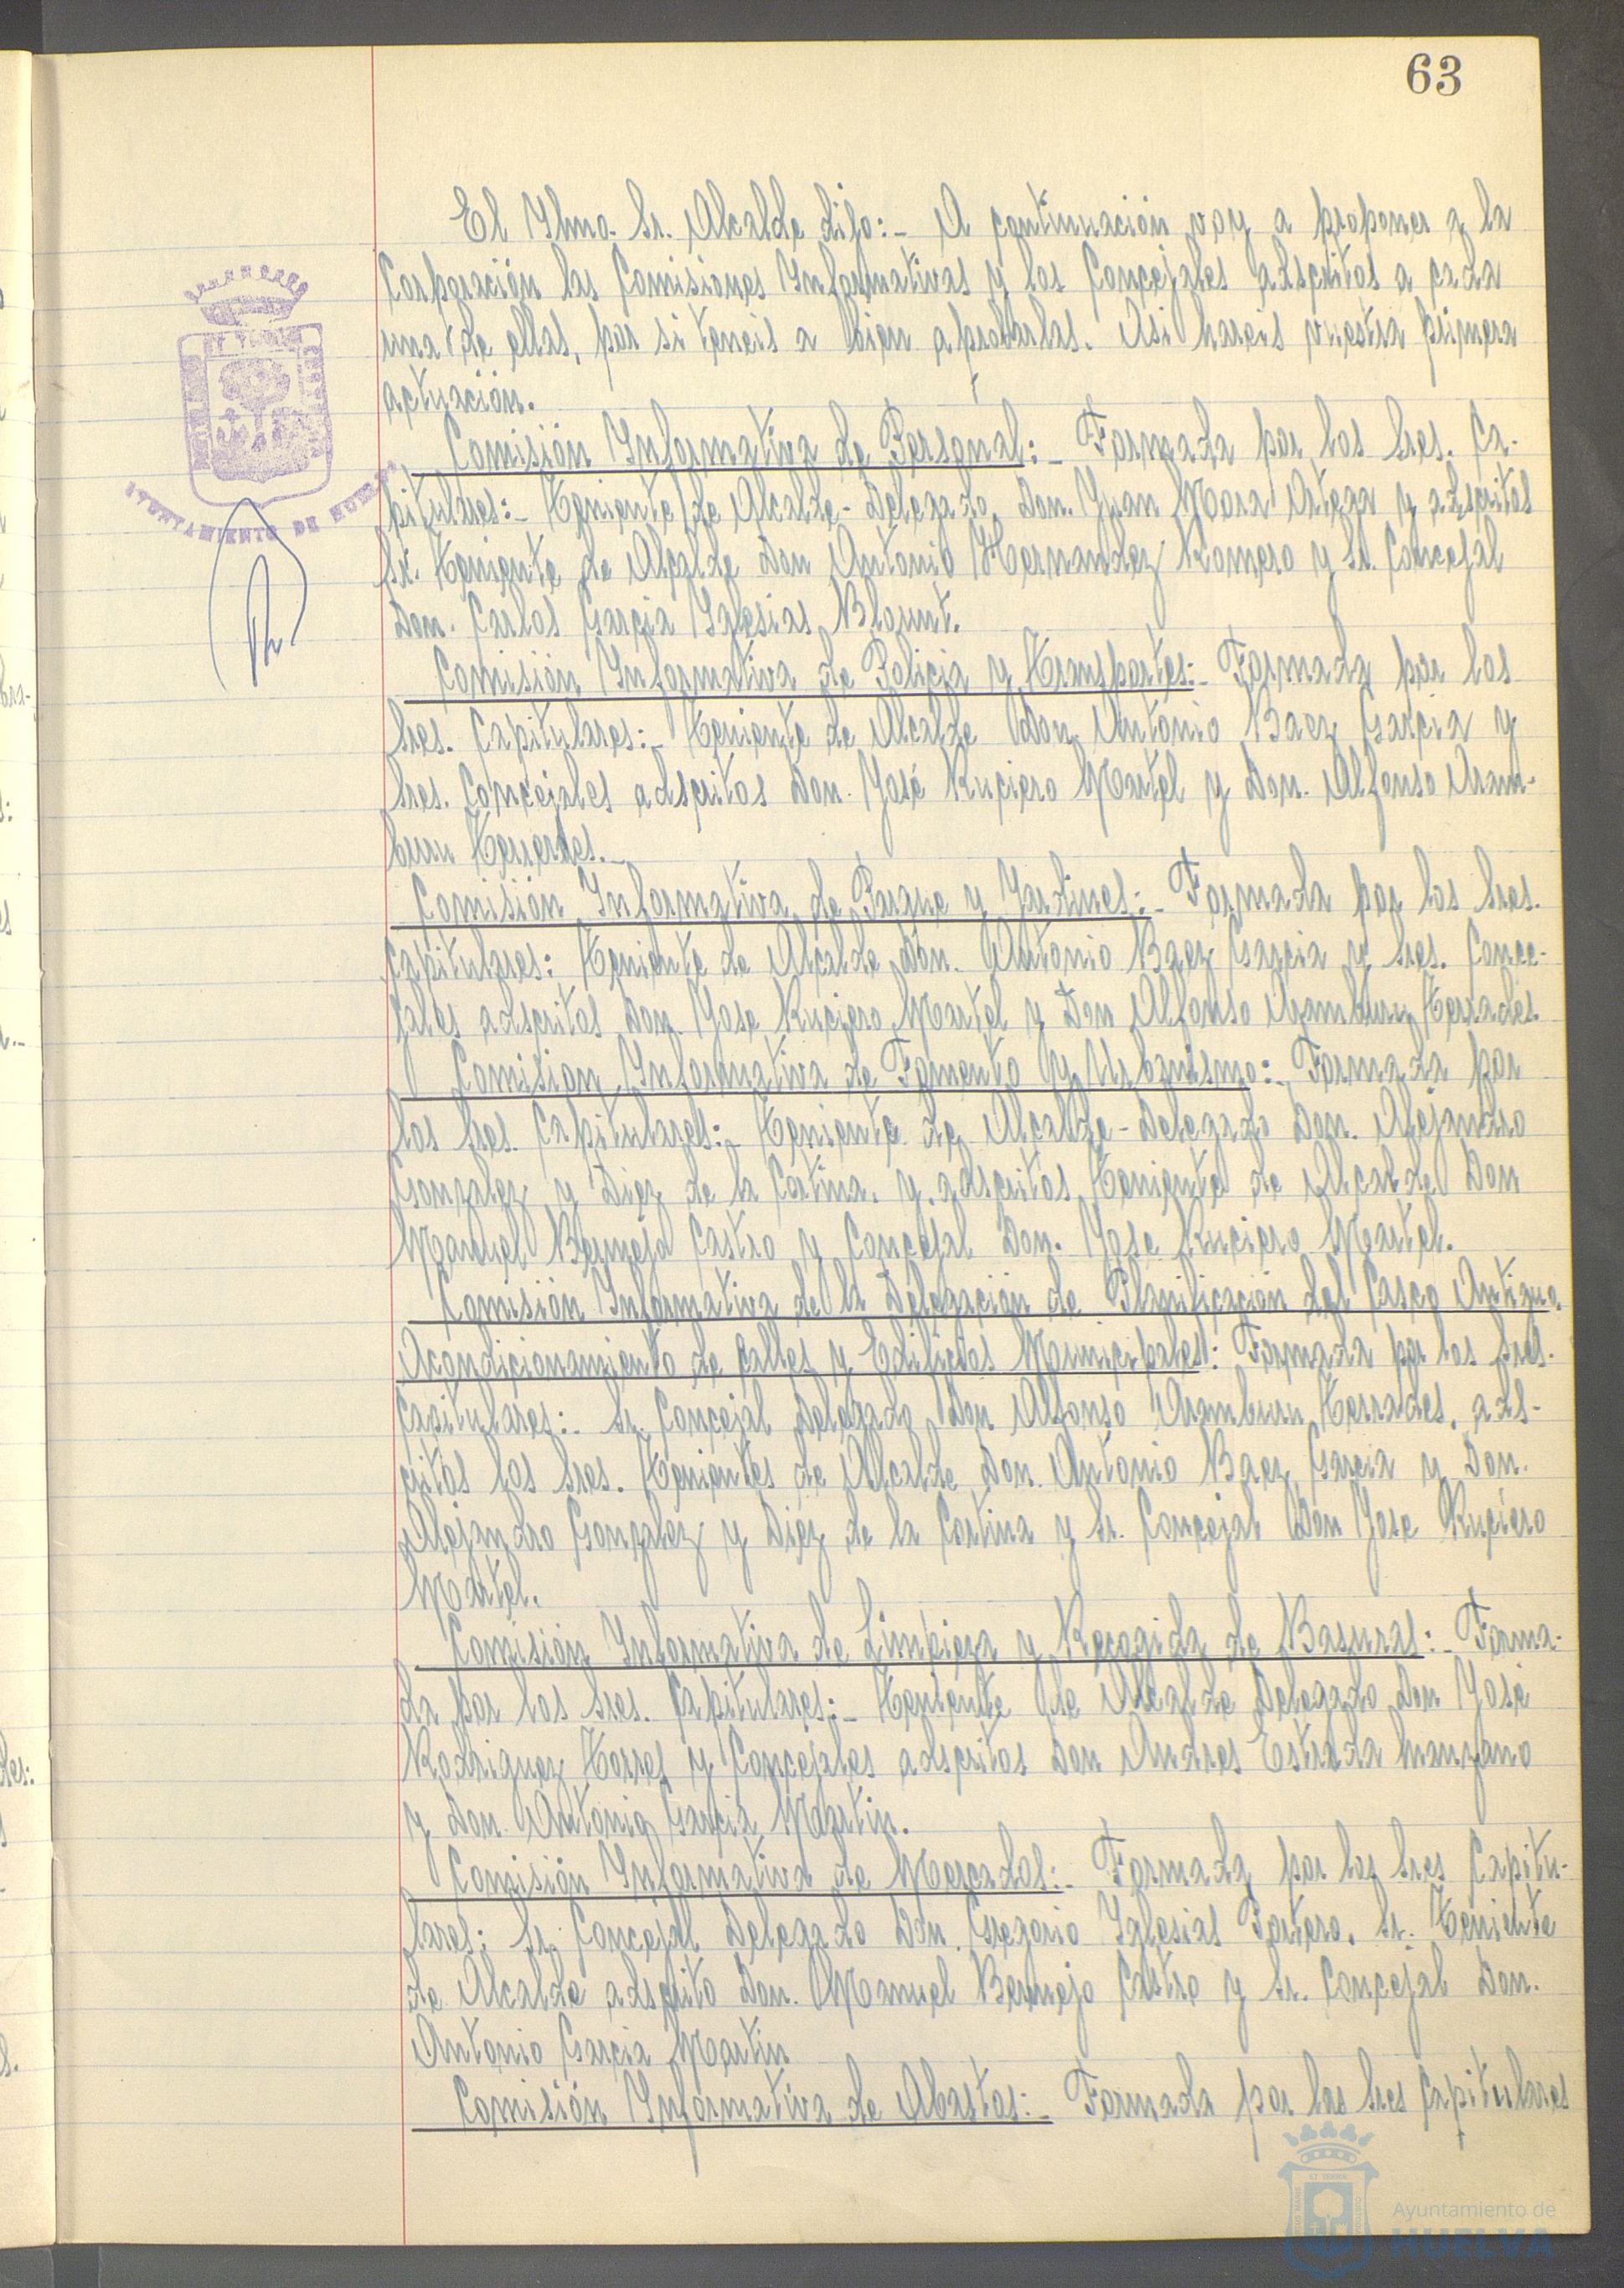 63
El Ylmo. Sr. Alcalde dijo:- A continuación voy a proponer a la
Corporación las Comisiones Informativas y los Concejales adscritos a cada
una de ellas, por si teneis a bien aprobarlas. Asi hareis vuestra primera
actuación.
Comisión Informativa de Personal:- Formada por los Sres. Ca-
pitulares:- Teniente de Alcalde-Delegado, Don. Juan Mora Ortega y adscritos
Sr. Teniente de Alcalde Don Antonio Hernandez Romero y Sr. Concejal
Don. Carlos Garcia Yglesias Blount.
Comisión Informativa de Policia y Transportes:- Formada por los
Sres. Capitulares:- Teniente de Alcalde Don Antonio Baez Garcia y
Sres. Concejales adscritos Don. José Ruciero Martel y Don. Alfonso Aram-
buru Terrades.-
Comisión Informativa de Parque y Jardines:- Formada por los Sres.
Capitulares: Teniente de Alcalde Don. Antonio Baez Garcia y Sres. Conce-
jales adscritos Don. Jose Ruciero Martel y Don Alfonso Aramburu Terrades.
Comision Informativa de Fomento y Urbanismo:- Formada por
los Sres. Capitulares:- Teniente de Alcalde-Delegado Don. Alejandro
Gonzalez y Diez de la Cortina, y adscritos Teniente de Alcalde Don
Manuel Bermejo Castro y Concejal Don. Jose Ruciero Martel.
Comisión Informativa de la Delegación de Planificación del Casco Antiguo,
Acondicionamiento de Calles y Edificios Municipales: Formada por los Sres.
Capitulares:- Sr. Concejal Delegado Don Alfonso Aramburu Terrades, ads-
critos los Sres. Tenientes de Alcalde Don. Antonio Baez Garcia y Don.
Alejandro Gonzalez y Diez de la Cortina y Sr. Concejal Don Jose Ruciero
Martel.
Comisión Informativa de Limpieza y Recogida de Basuras:- Forma-
da por los Sres. Capitulares:- Teniente de Alcalde Delegado Don José
Rodriguez Torres y Concejales adscritos Don Andres Estrada Manzano
y Don. Antonio Garcia Martin.
Comisión Informativa de Mercados:- Formada por los Sres Capitu-
lares: Sr. Concejal Delegado Don. Gregorio Yglesias Portero, Sr. Teniente
de Alcalde adscrito Don. Manuel Bermejo Castro y Sr. Concejal Don.
Antonio Garcia Martin
Comisión Informativa de Abastos:- Formada por los Sres Capitulares
AYUNTAMIENTO DE HUELVA
Ayuntamiento de
HUELVA